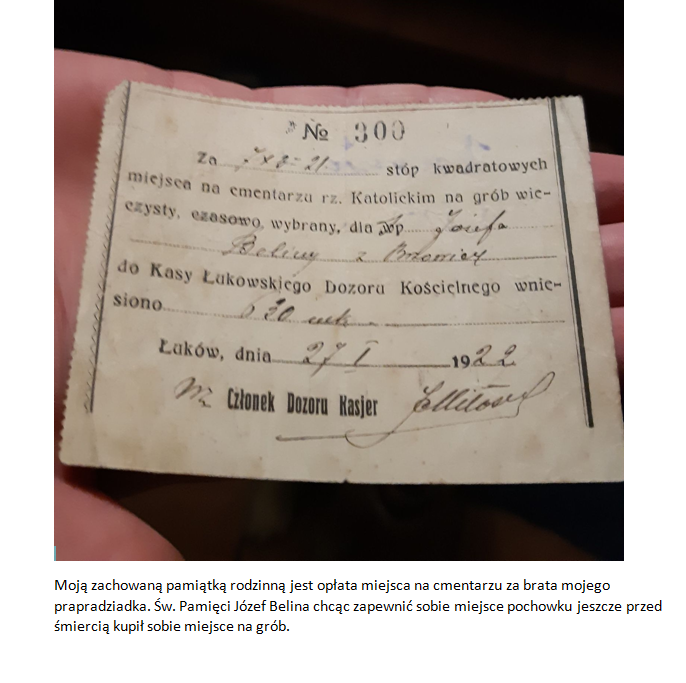 № 300
Za 7x3=21 stóp kwadratowych
miejsca na cmentarzu rz. Katolickim na grób wie-
czysty, czasowo, wybrany, dla śp Józefa
Beliny z
do Kasy Łukowskiego Dozoru Kościelnego wnie-
siono 630 mk
Łuków, dnia 27 I 1922
Członek Dozoru Kasjer
Moją zachowaną pamiątką rodzinną jest opłata miejsca na cmentarzu za brata mojego
prapradziadka. Św. Pamięci Józef Belina chcąc zapewnić sobie miejsce pochowku jeszcze przed
śmiercią kupił sobie miejsce na grób.